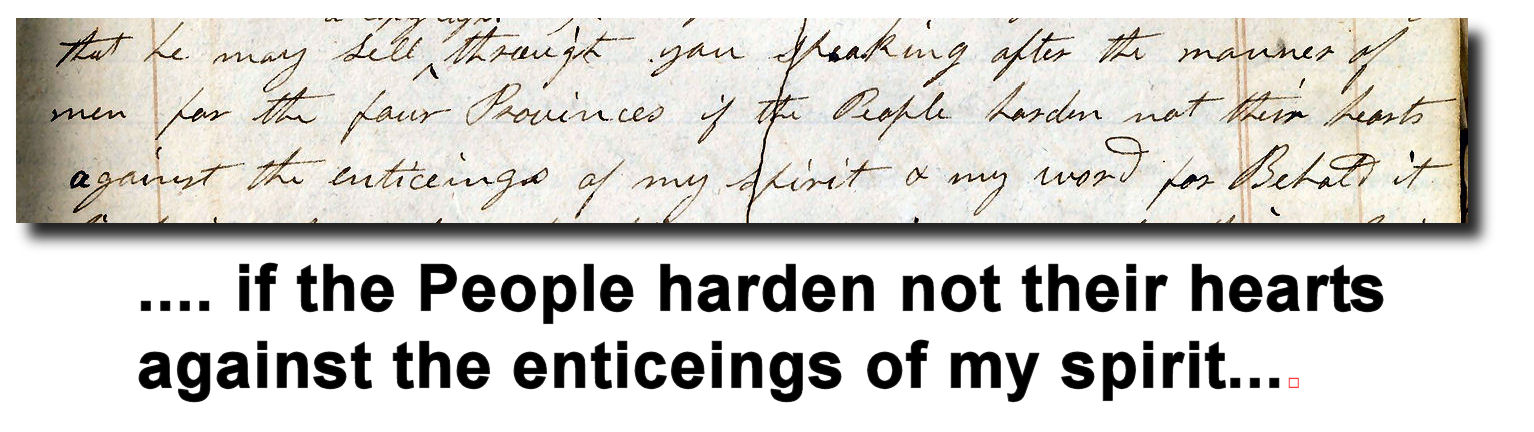 a copyright
that he may sell ^ through you speaking after the manner of
men for the four Provinces if the People harden not their hearts
against the enticeings of my spirit & my word for Behold it
.... if the People harden not their hearts
against the enticeings of my spirit...